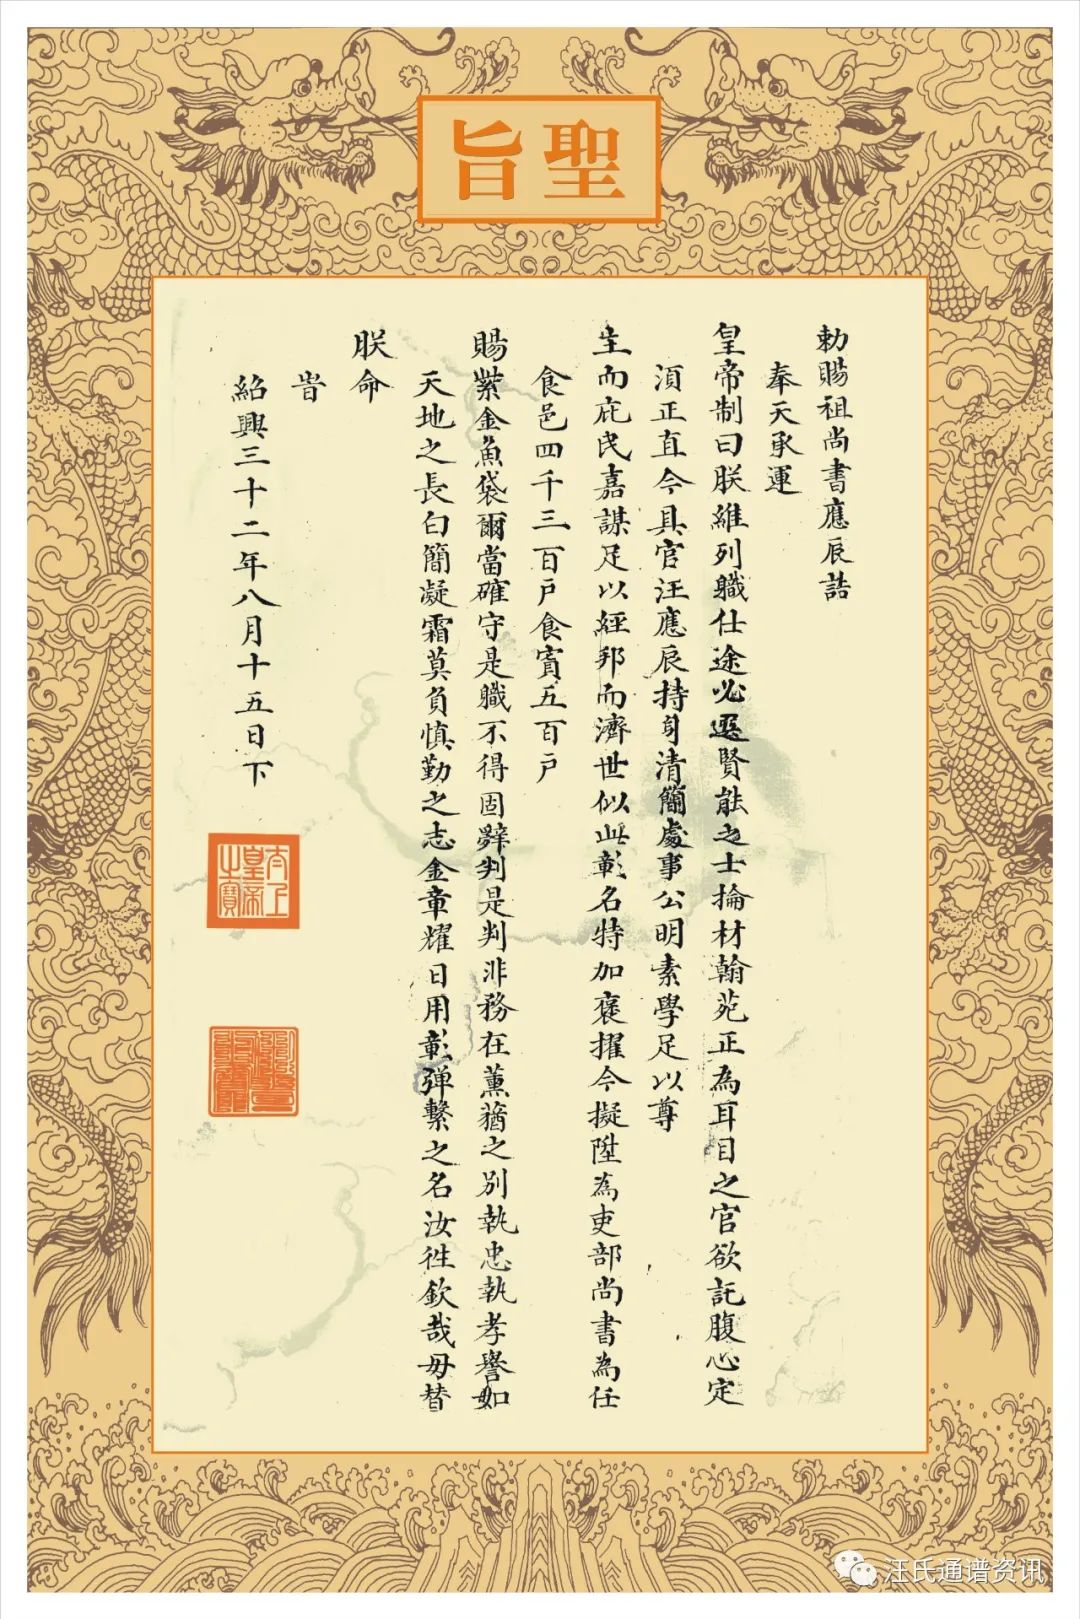 聖旨
勅賜祖尚書應辰誥
奉天承運
皇帝制曰朕維列職仕途必選賢能之士掄材翰苑正為耳目之官欲託腹心定
須正直今具官汪應辰持身清簡處事公明素學足以尊
生而庇民嘉謀足以經邦而濟世似此彰名特加褒擢今擬陞為吏部尚書為任
食邑四千三百戶食實五百戶
賜紫金魚袋爾當確守是職不得固辭判是判非務在薰蕕之別執忠執孝譽如
天地之長白簡凝霜莫負慎勤之志金章耀日用彰弹繫之名汝徃欽哉毋替
朕命
旹
紹興三十二年八月十五日下
太上皇帝之寶
汪氏通谱资讯